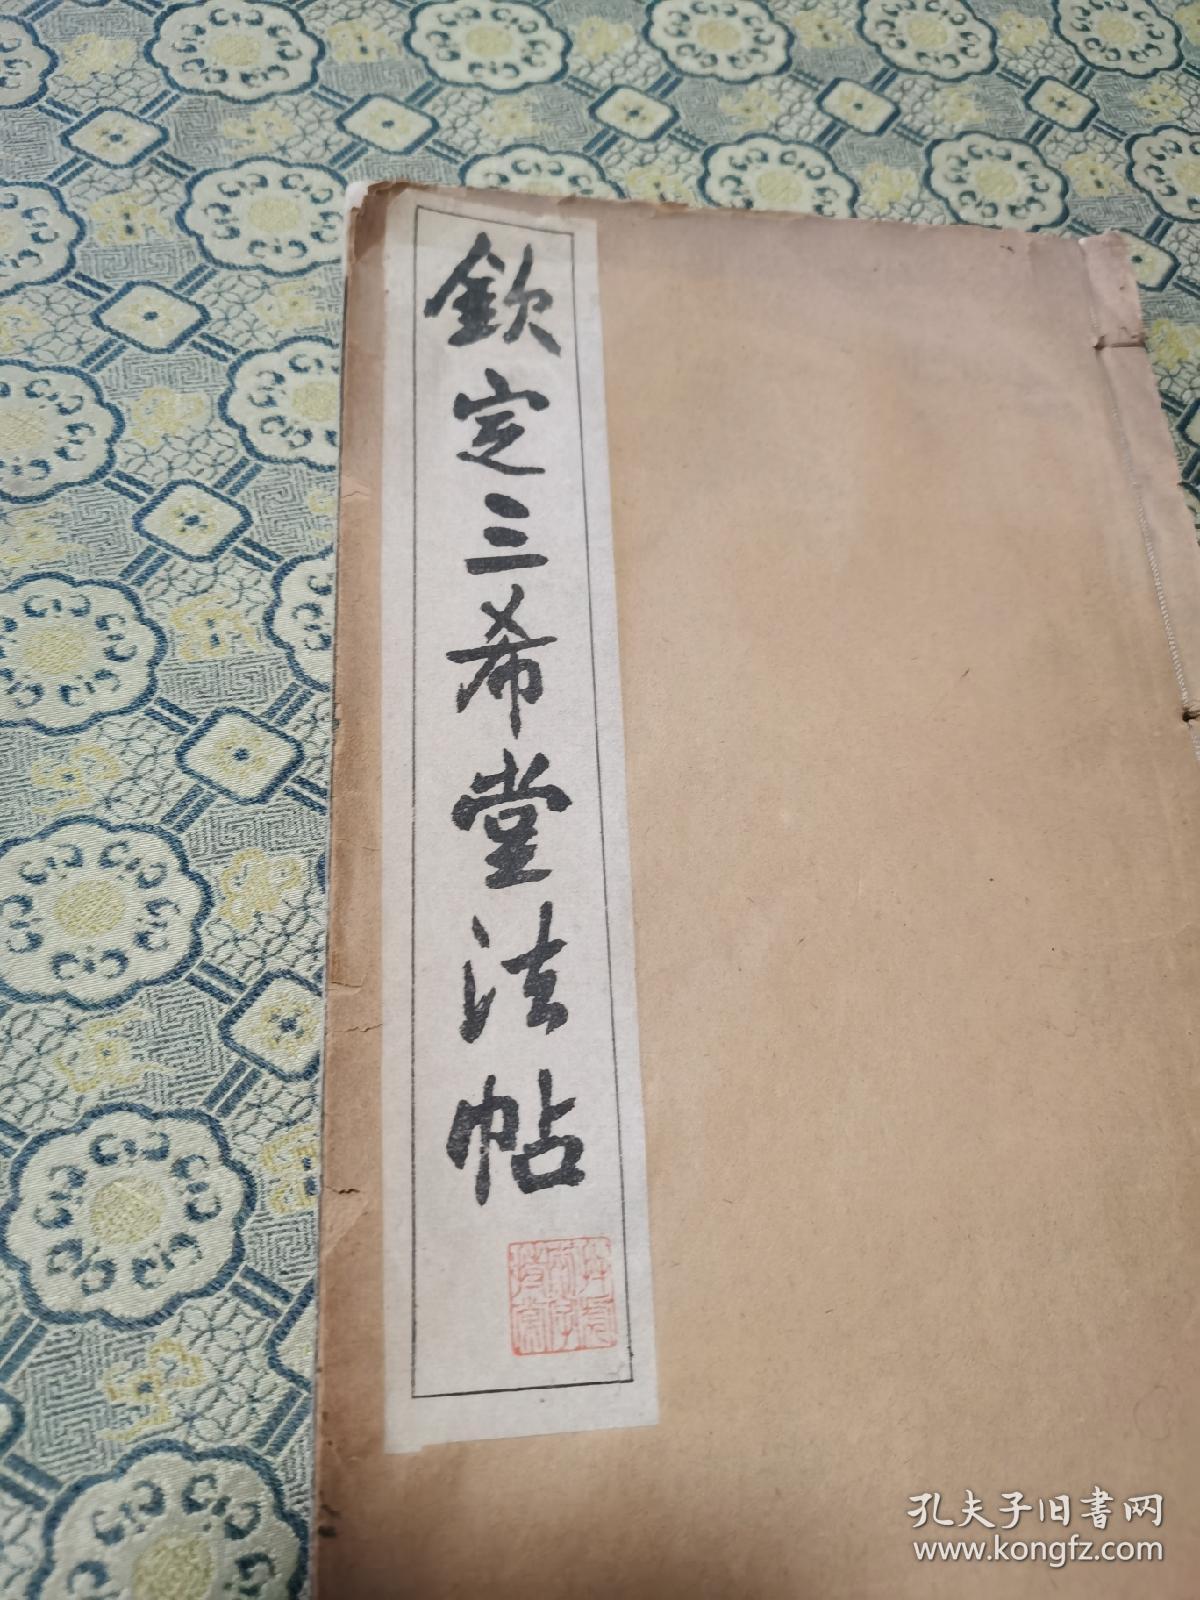 欽定三希堂法帖
孔夫子旧書网
www.kongfz.com